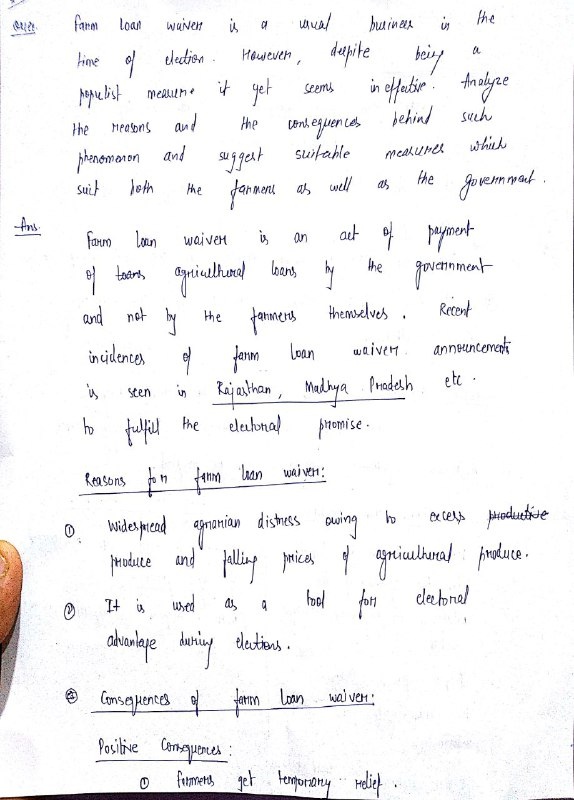 Ques. Farm loan waiver is a usual business in the
time of election. However, despite being a
populist measure it yet seems ineffective. Analyze
the reasons and the consequences behind such
phenomenon and suggest suitable measures which
suit both the farmers as well as the government.
Ans. Farm loan waiver is an act of payment
of loans agricultural loans by the government
and not by the farmers themselves. Recent
incidences of farm loan waiver announcements
is seen in Rajasthan, Madhya Pradesh etc.
to fulfill the electoral promise.
Reasons for farm loan waiver:
① Widespread agrarian distress owing to excess productive
produce and falling prices of agricultural produce.
② It is used as a tool for electoral
advantage during elections.
③ Consequences of farm loan waiver:
Positive Consequences:
① farmers get temporary relief.